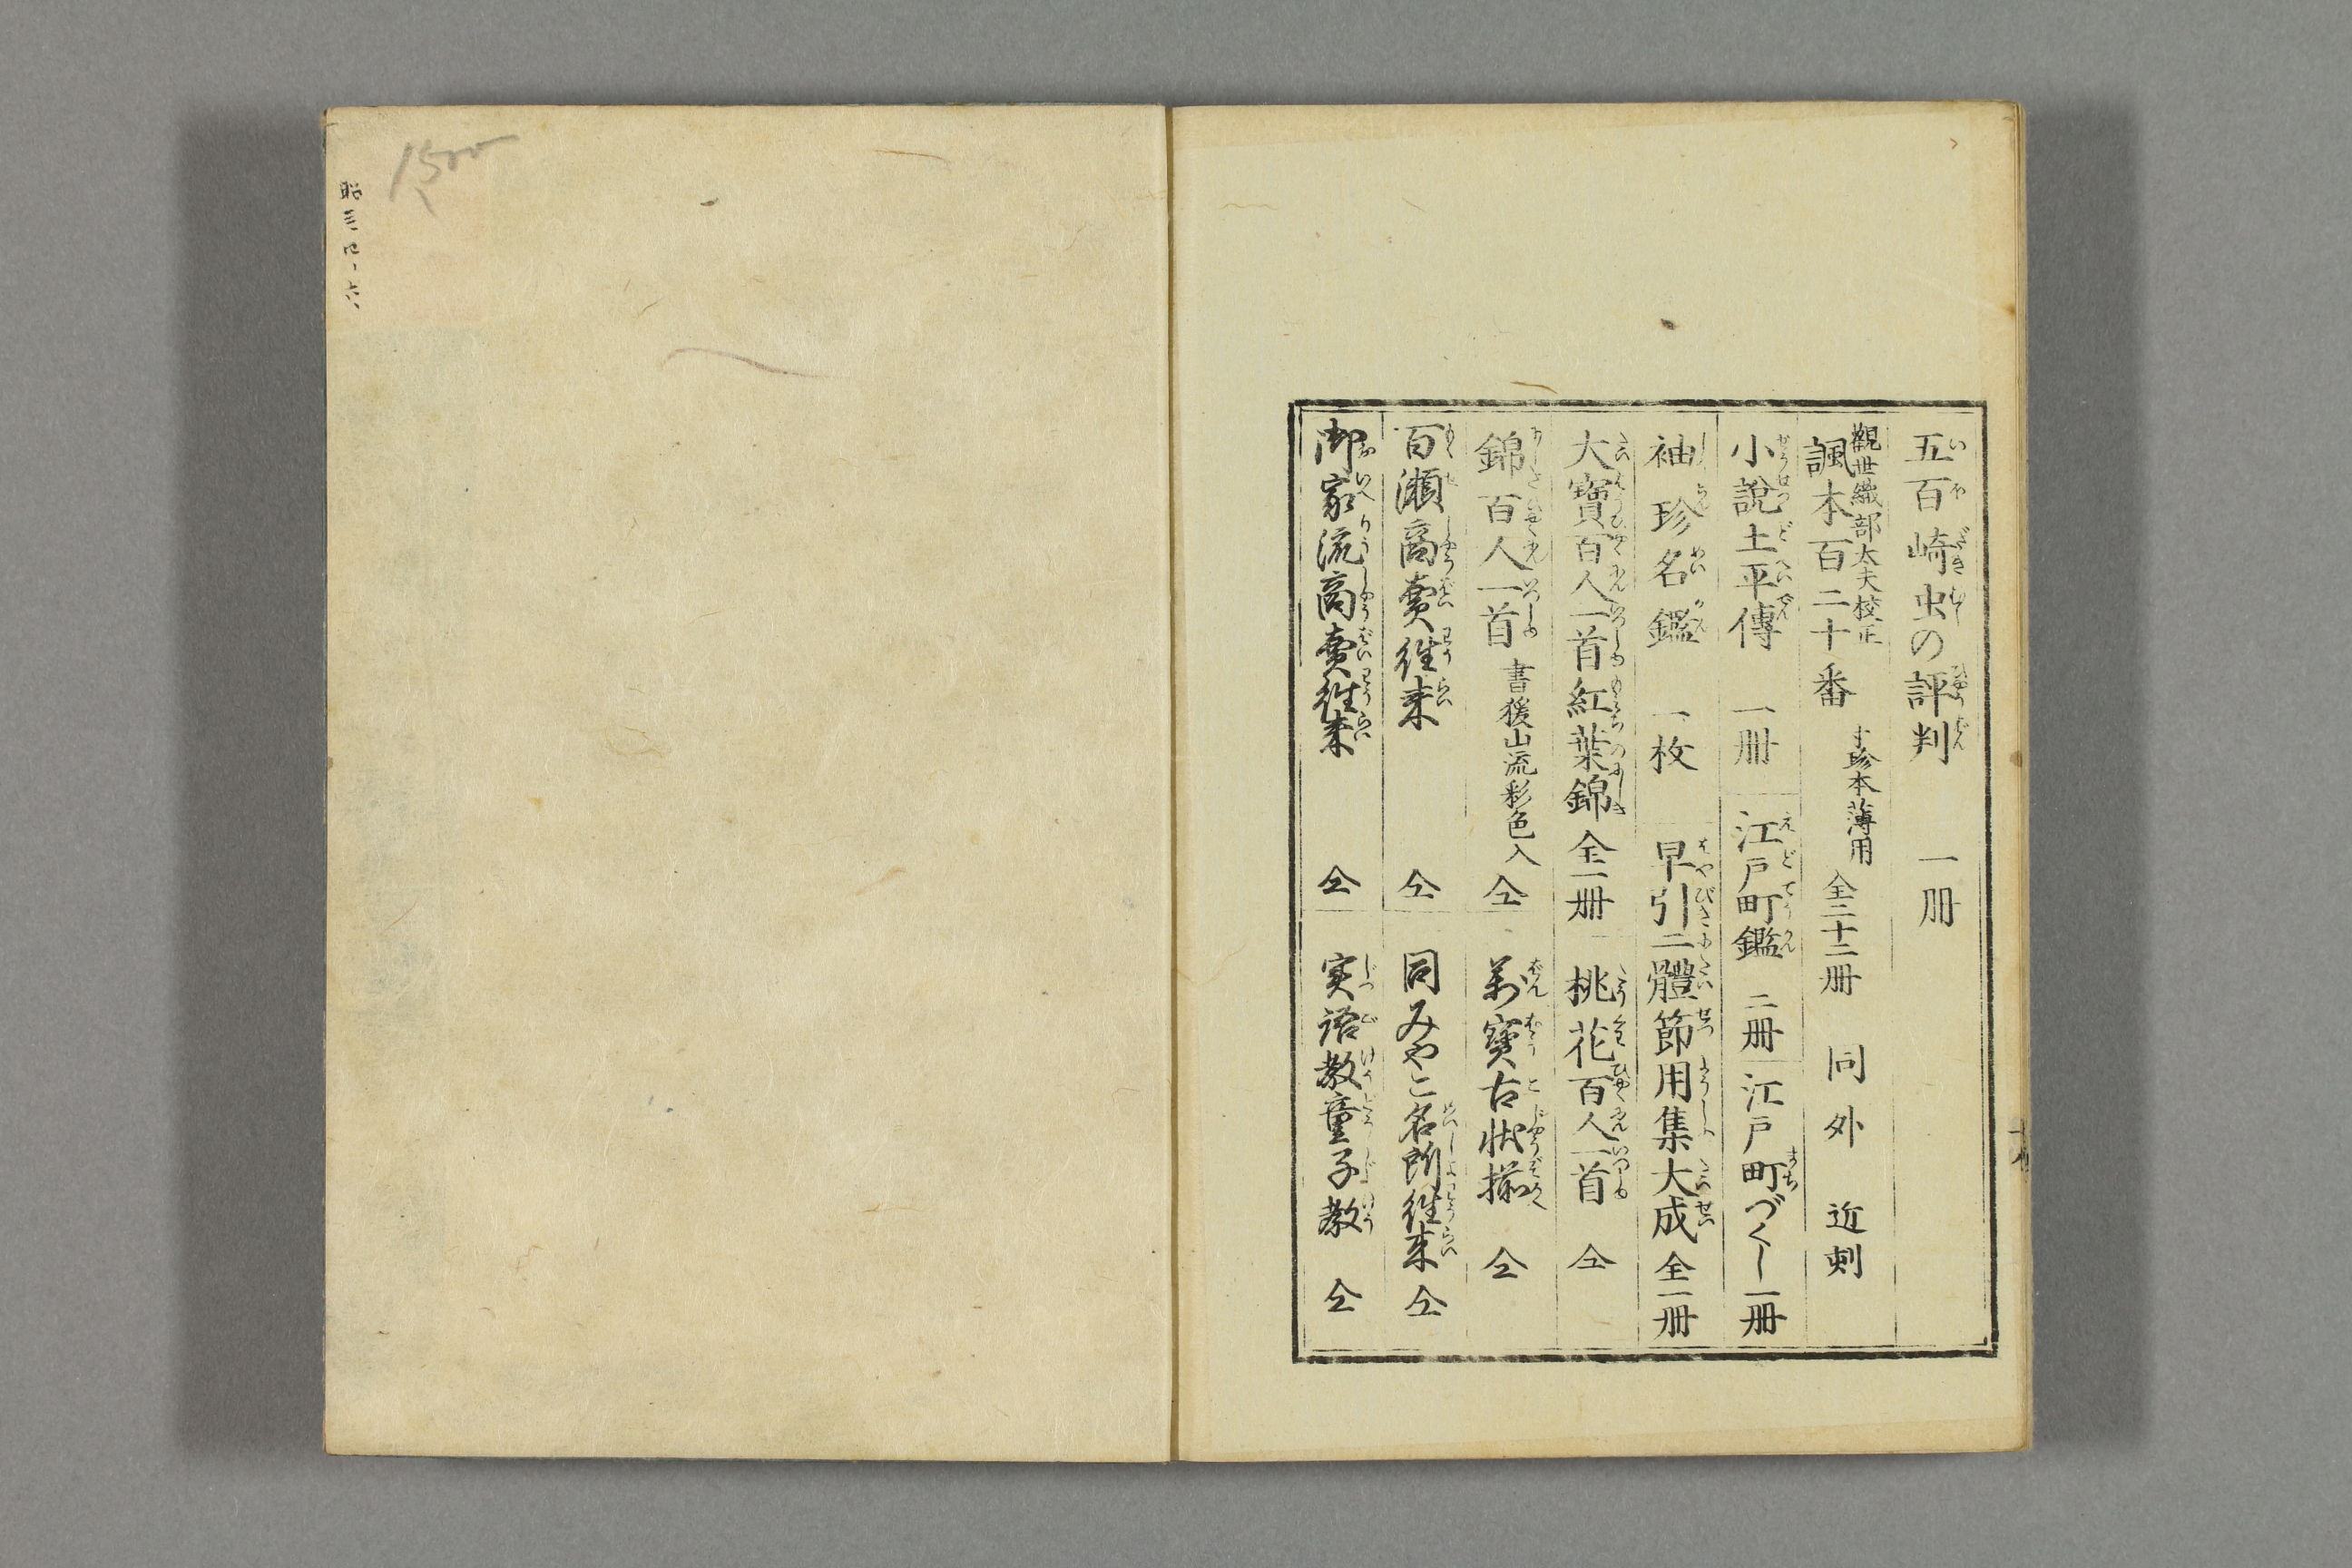 五百崎虫の評判　一册
觀世織部太夫校正
諷本百二十番　寸珍本薄用　全二十二册　同外　近刻
小說土平傳　一册　江戸町鑑　二册　江戸町づくし　一册
袖珍名鑑　一枚　早引二體節用集大成　全一册
大寶百人一首紅葉錦　全一册　桃花百人一首　仝
錦百人一首　書猨山流彩色入　仝　萬寶古状揃　仝
百瀬商賣徃来　仝　同みやこ名所徃来　仝
御家流商賣徃来　仝　実語教童子教　仝
1500
昭三四、六